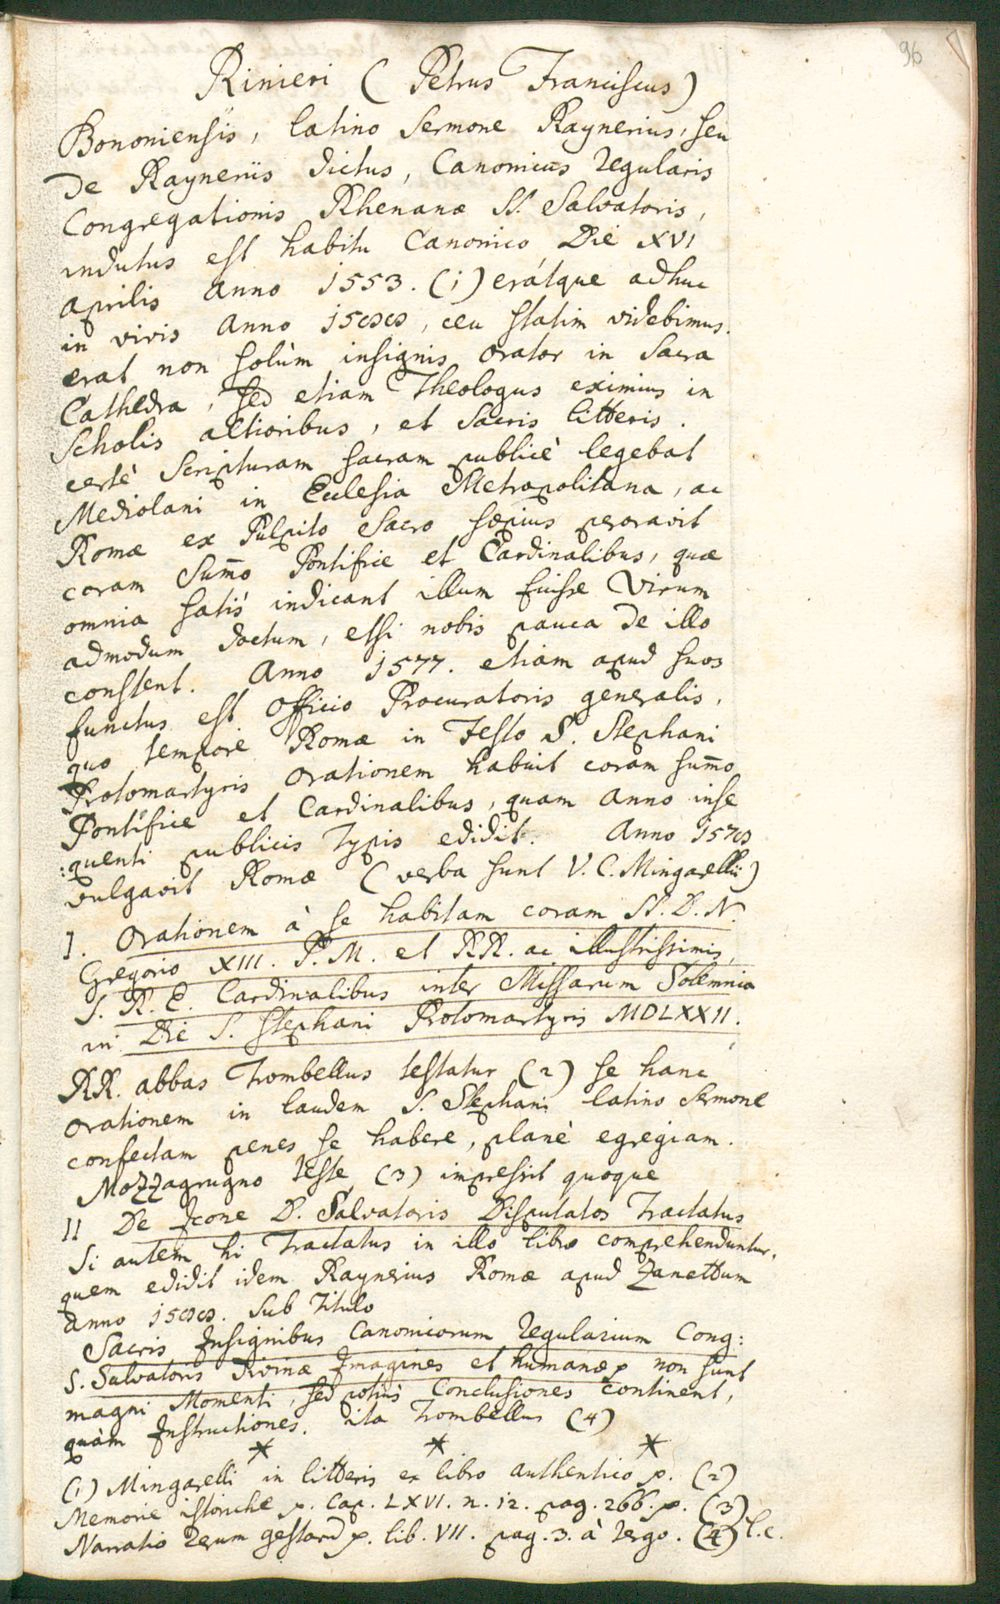 96
Rinieri ( Petrus Franciscus )
Bononiensis, latino sermone Raynerius, seu
De Rayneriis dictus, Canonicus regularis
Congregationis Rhenanæ SS. Salvatoris,
indutus est habitu Canonico Die XVI
aprilis anno 1553. (1) erátque adhuc
in vivis anno 1588, ceu statim videbimus.
erat non solùm insignis orator in sacra
Cathedra, sed etiam Theologus eximius in
scholis altioribus, et sacris litteris.
certè scripturam sacram publicè legebat
Mediolani in Ecclesia Metropolitana, ac
Romæ ex Pulpito Sacro sæpius peroravit
coram Sum̄o Pontifice et Cardinalibus, quæ
omnia satis indicant illum fuisse Virum
admodum doctum, etsi nobis pauca de illo
constent. Anno 1577. etiam apud suos
functus est officio Procuratoris generalis,
quo tempore Romæ in Festo S. Stephani
Protomartyris orationem habuit coram sum̄o
Pontifice et Cardinalibus, quam anno inse
:quenti publicis typis edidit. Anno 1578
vulgavit Romæ ( verba sunt V. C. Mingarellii )
I. Orationem à se habitam coram SS. D. N.
Gregorio XIII. P. M. et RR. ac illustrissimis,
S. R. E. Cardinalibus inter Missarum Solemnia
in Die S. Stephani Protomartyris MDLXXII.
RR. abbas Trombellus testatur (2) se hanc
orationem in laudem S. Stephani latino sermone
confectam penes se habere, planè egregiam.
Mozzagrugno teste (3) impressit quoque
II De Icone D. Salvatoris Disputatos Tractatus
Si autem hi Tractatus in illo libro comprehenduntur,
quem edidit idem Raynerius Romæ apud Zanettum
anno 1588. sub titulo
Sacris Insignibus Canonicorum regularium Cong:
S. Salvatoris Divinæ Imagines et humanæ, non sunt
magni Momenti, sed potiùs Conclusiones continent,
quàm Instructiones. ita Trombellus (4)
* * *
(1) Mingarelli in litteris ex libro authentico p. (2)
Memorie istoriche p. Cap. LXVI. n. 12. pag. 266. p. (3)
Narratio rerum gestarū p. lib. VII. pag. 3. à tergo. (4) l. c.